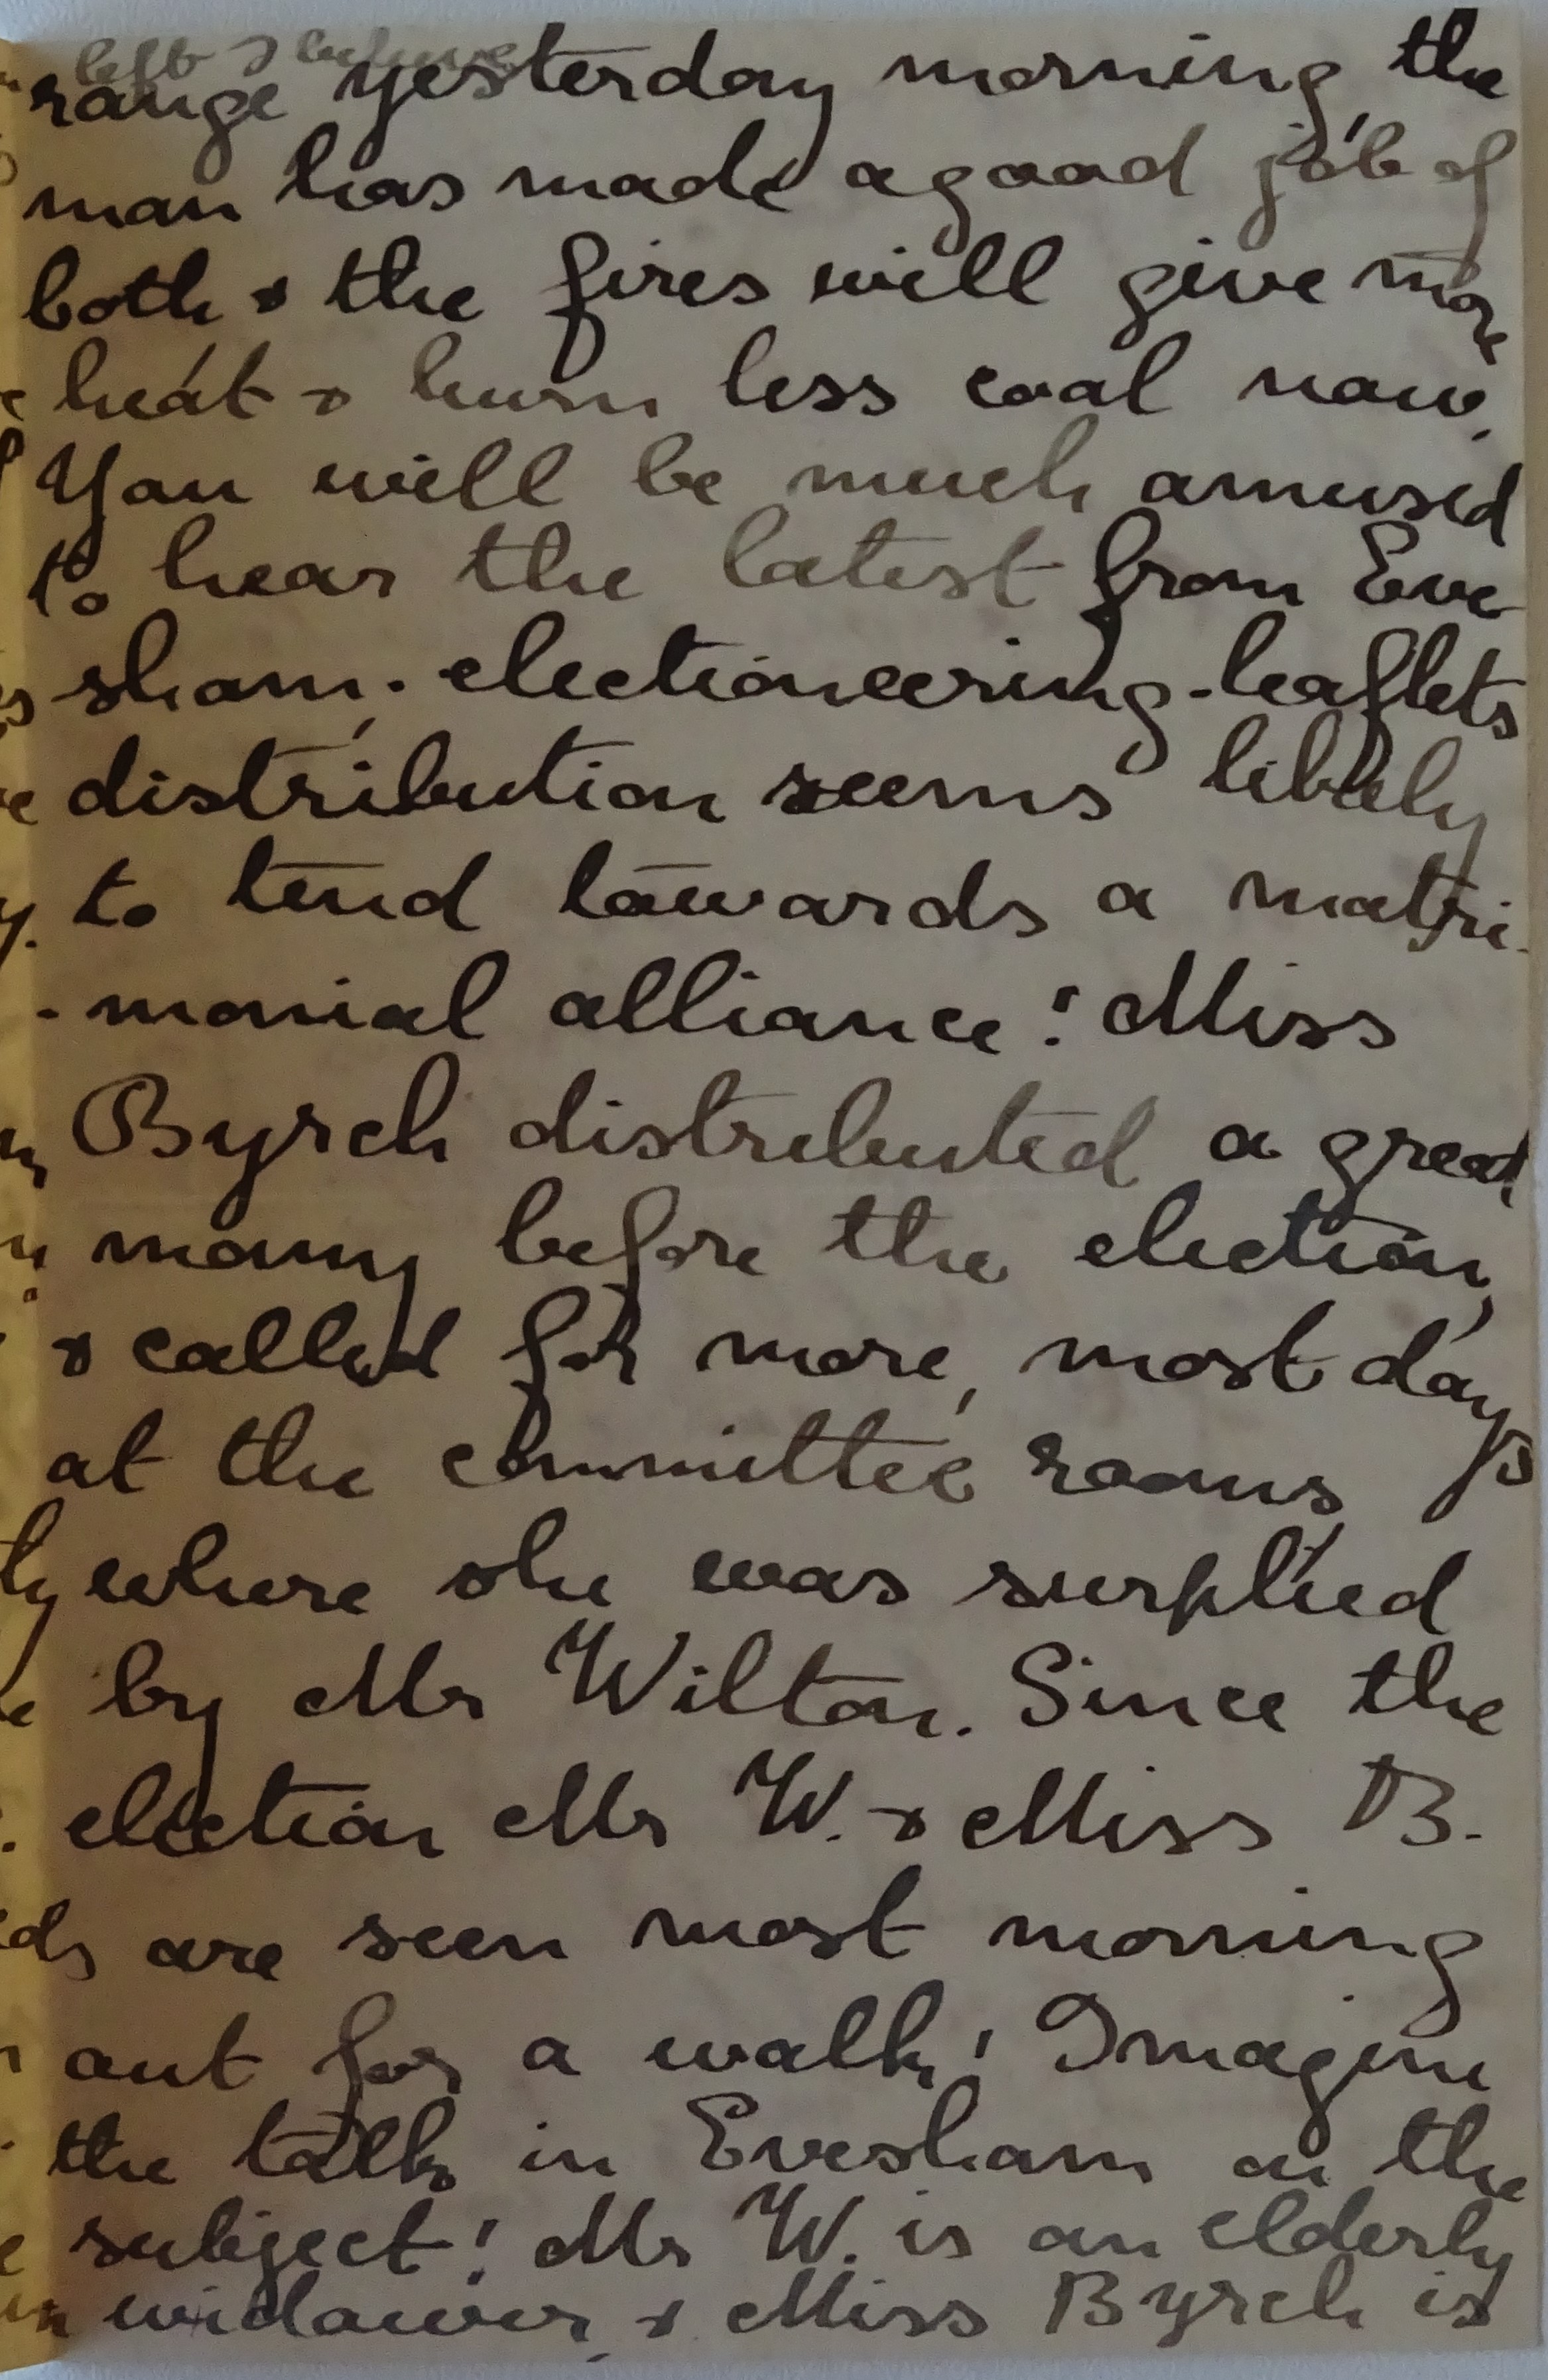 left I believe
range yesterday morning, the
man has made a good job of
both, & the fires will give more
heat & burn less coal now.
You will be much amused
to hear the latest from Eve
sham; - electioneering - leaflets
distribution seems likely
to tend towards a matri-
- monial alliance! Miss
Byrch distributed a great
many before the election,
& called for more, most days
at the committee rooms,
where she was supplied
by Mr Wilton. Since the
election Mr W. & Miss B.
are seen most morning
out for a walk! Imagine
the talk in Evesham on the
subject! Mr W. is an elderly
widower, & Miss Byrch is